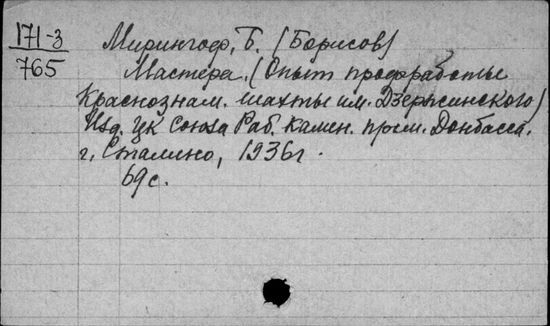 171-3
765
Мирингоф, Б. (Борисов)
Мастера. (Опыт профработы
Краснознам. шахты им. Дзержинского)
Изд. ЦК Союза Раб. Камен. пром. Донбасса.
г. Сталино, 1936г.
69 с.